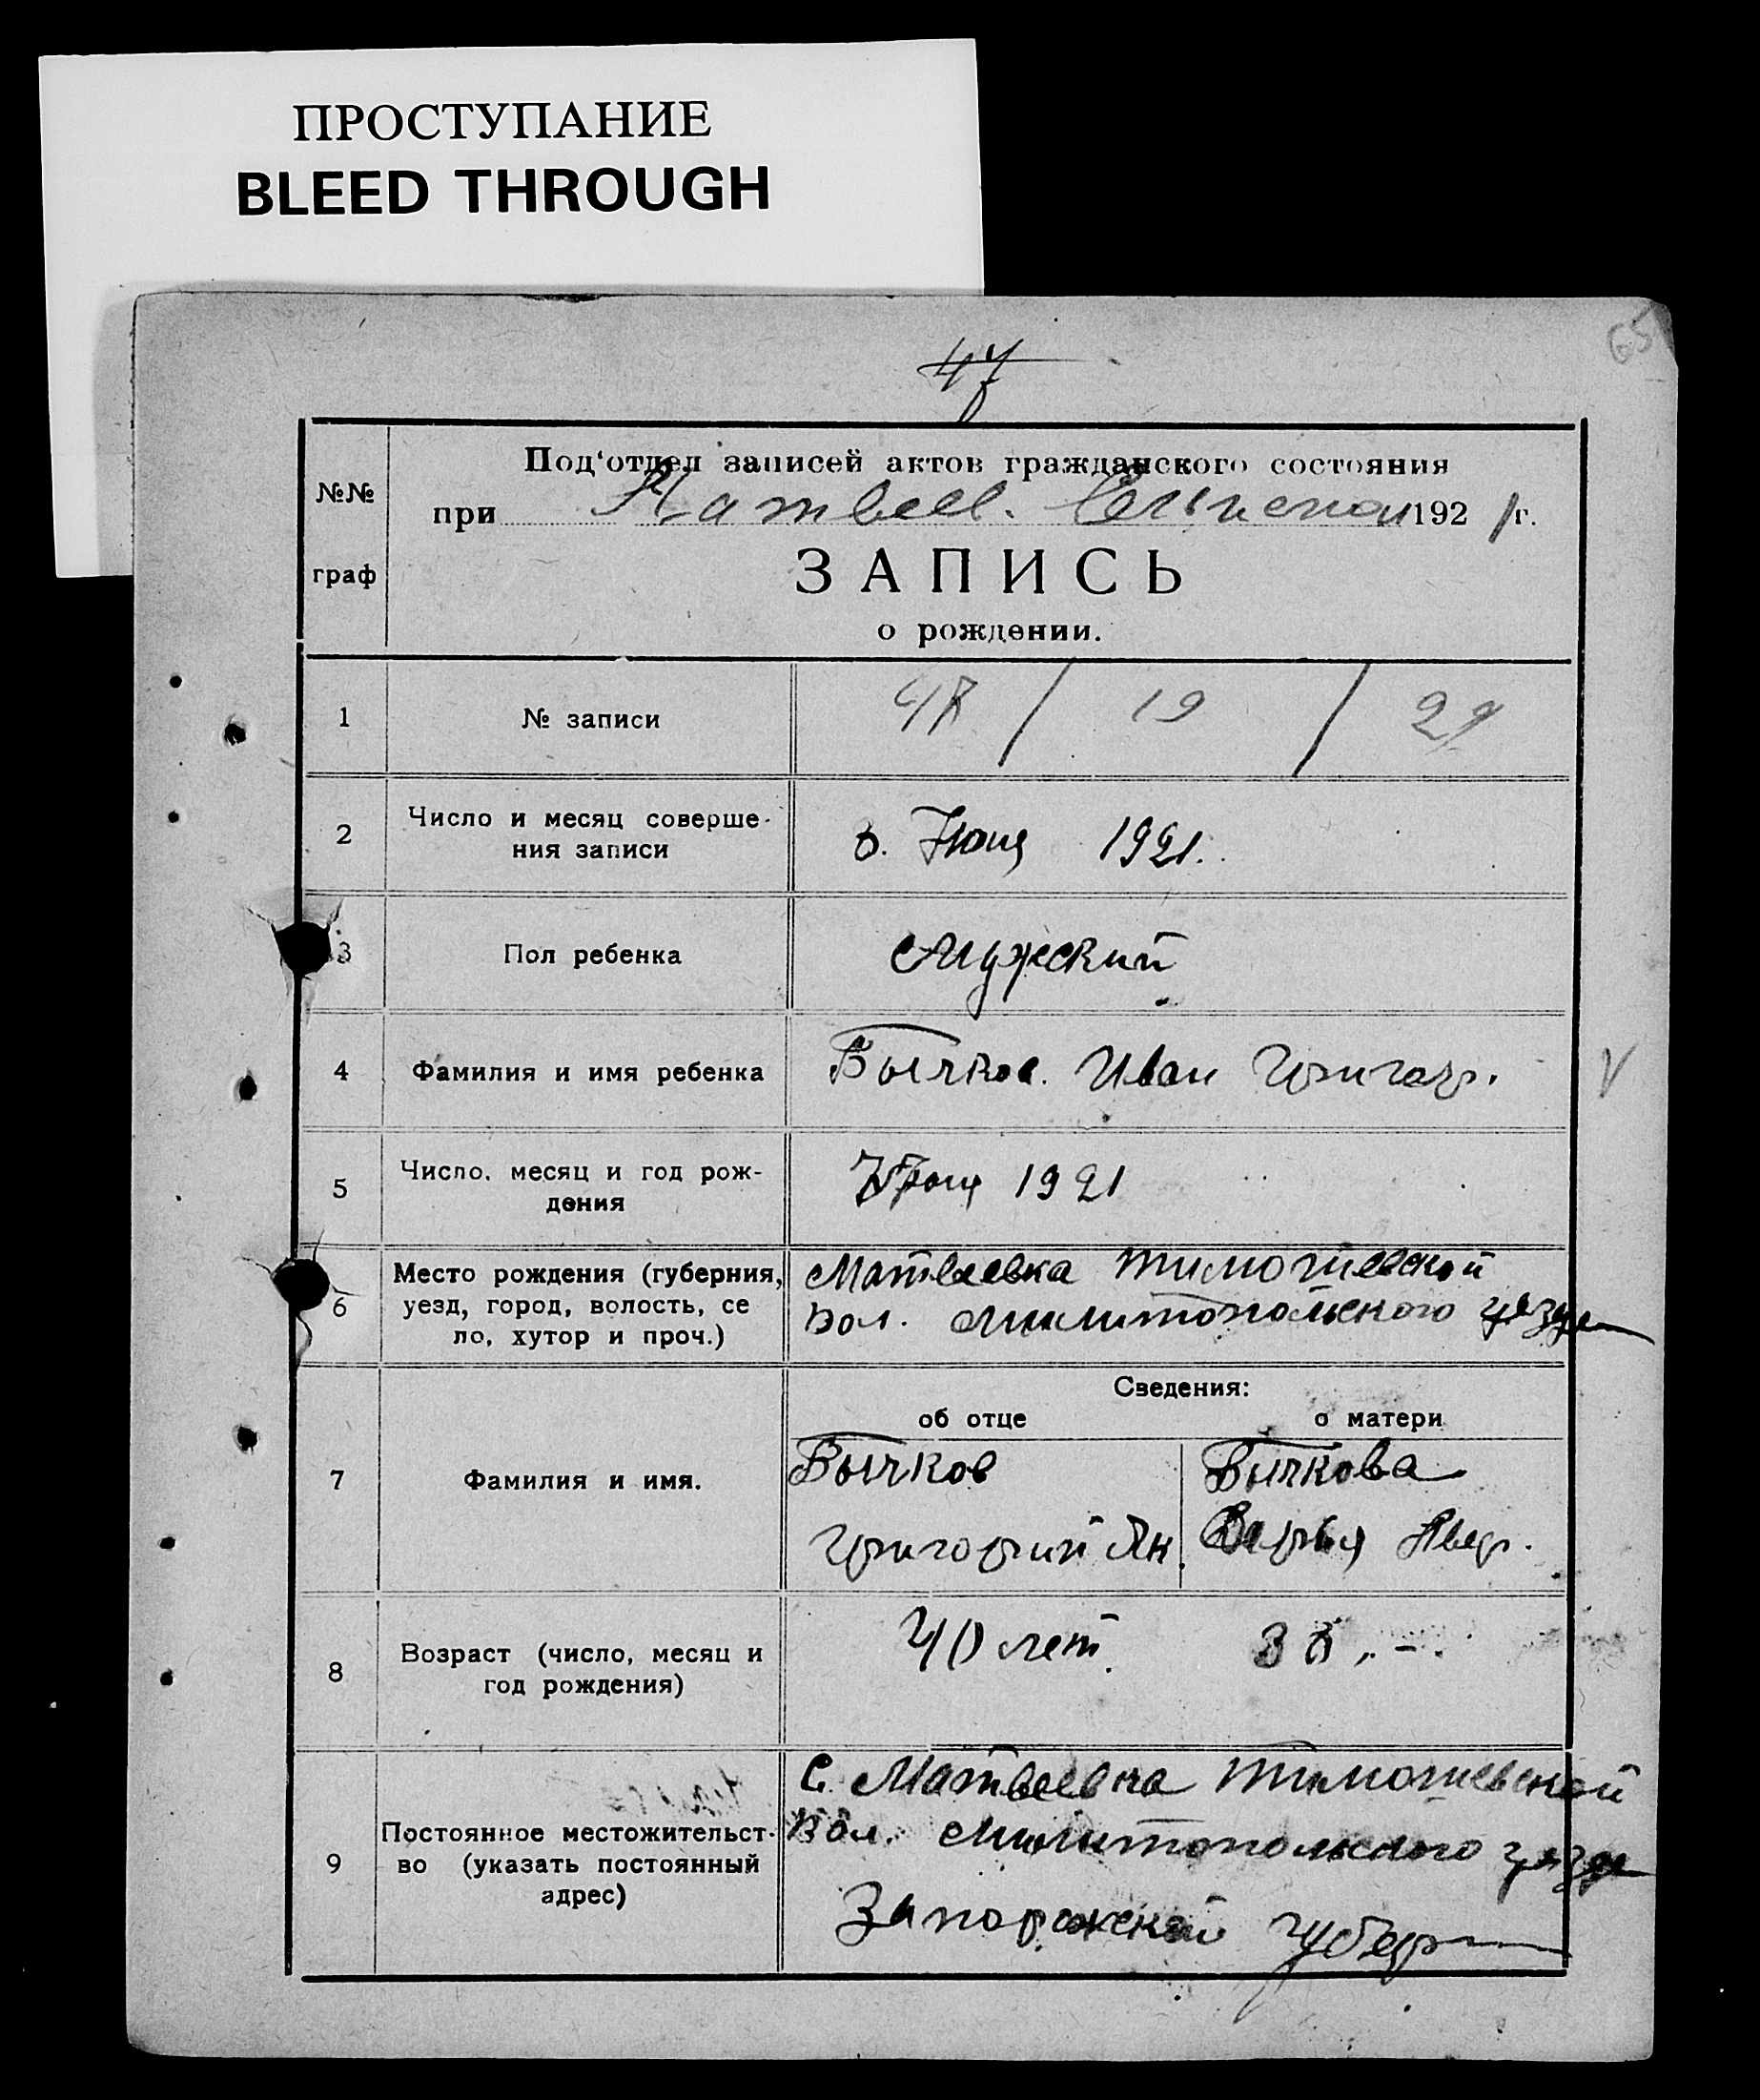 ПРОСТУПАНИЕ
BLEED THROUGH
65
47
Под‘отдел записей актов гражданского состояния
№№
при 192 1 г.
граф
ЗАПИСЬ
о рождении.
1 № записи 47 / 19 / 29
2 Число и месяц соверше-
ния записи
Июня 1921.
3 Пол ребенка Мужский
4 Фамилия и имя ребенка Бычков. Иван Григор. V
5 Число, месяц и год рож-
дения
Июня 1921
6 Место рождения (губерния,
уезд, город, волость, се
ло, хутор и проч.)
Матвеевка Тимошевской
вол. Милитопольского уезда
Сведения:
об отце о матери
7 Фамилия и имя.
Бычков Бычкова
Григорий Як. Дарья Авер.
8 Возраст (число, месяц и
год рождения)
40 лет
9 Постоянное местожительст-
во (указать постоянный
адрес)
С. Матвеевка Тимошевской
вол. Милитопольского уезда
Запорожской губер